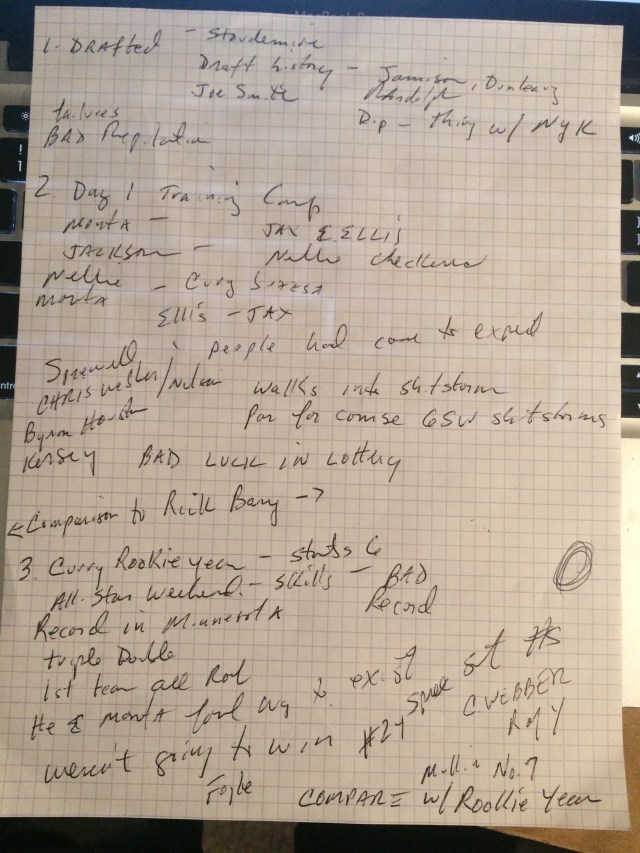 1. DRAFTED - Stoudemire
Draft history - Jamison, Dunleavy
Joe Smith Randolph
failures D.p - thing w/ NYK
BAD Reputation
2. Day 1 Training Camp
MONTA - JAX & ELLIS
JACKSON - Nellie checkered
Nellie - Curry
MONTA
Ellis - JAX
Sprewell people had come to expect
CHRIS Webber/Nelson walks into shitstorm
Byron Houston Par for course GSW shitstorms
Kersey BAD LUCK IN Lottery
Comparison to Rick Barry ->
3. Curry Rookie year - starts 6
All-Star Weekend - Skills - BAD
Record in MinnesotA Record
triple Double
1st team all Rook
He & MontA found way to exist Spree St #s
weren't going to win #24 C. WEBBER
Roy
Foyle Mullin No. 7
COMPARE w/ Rookie Year